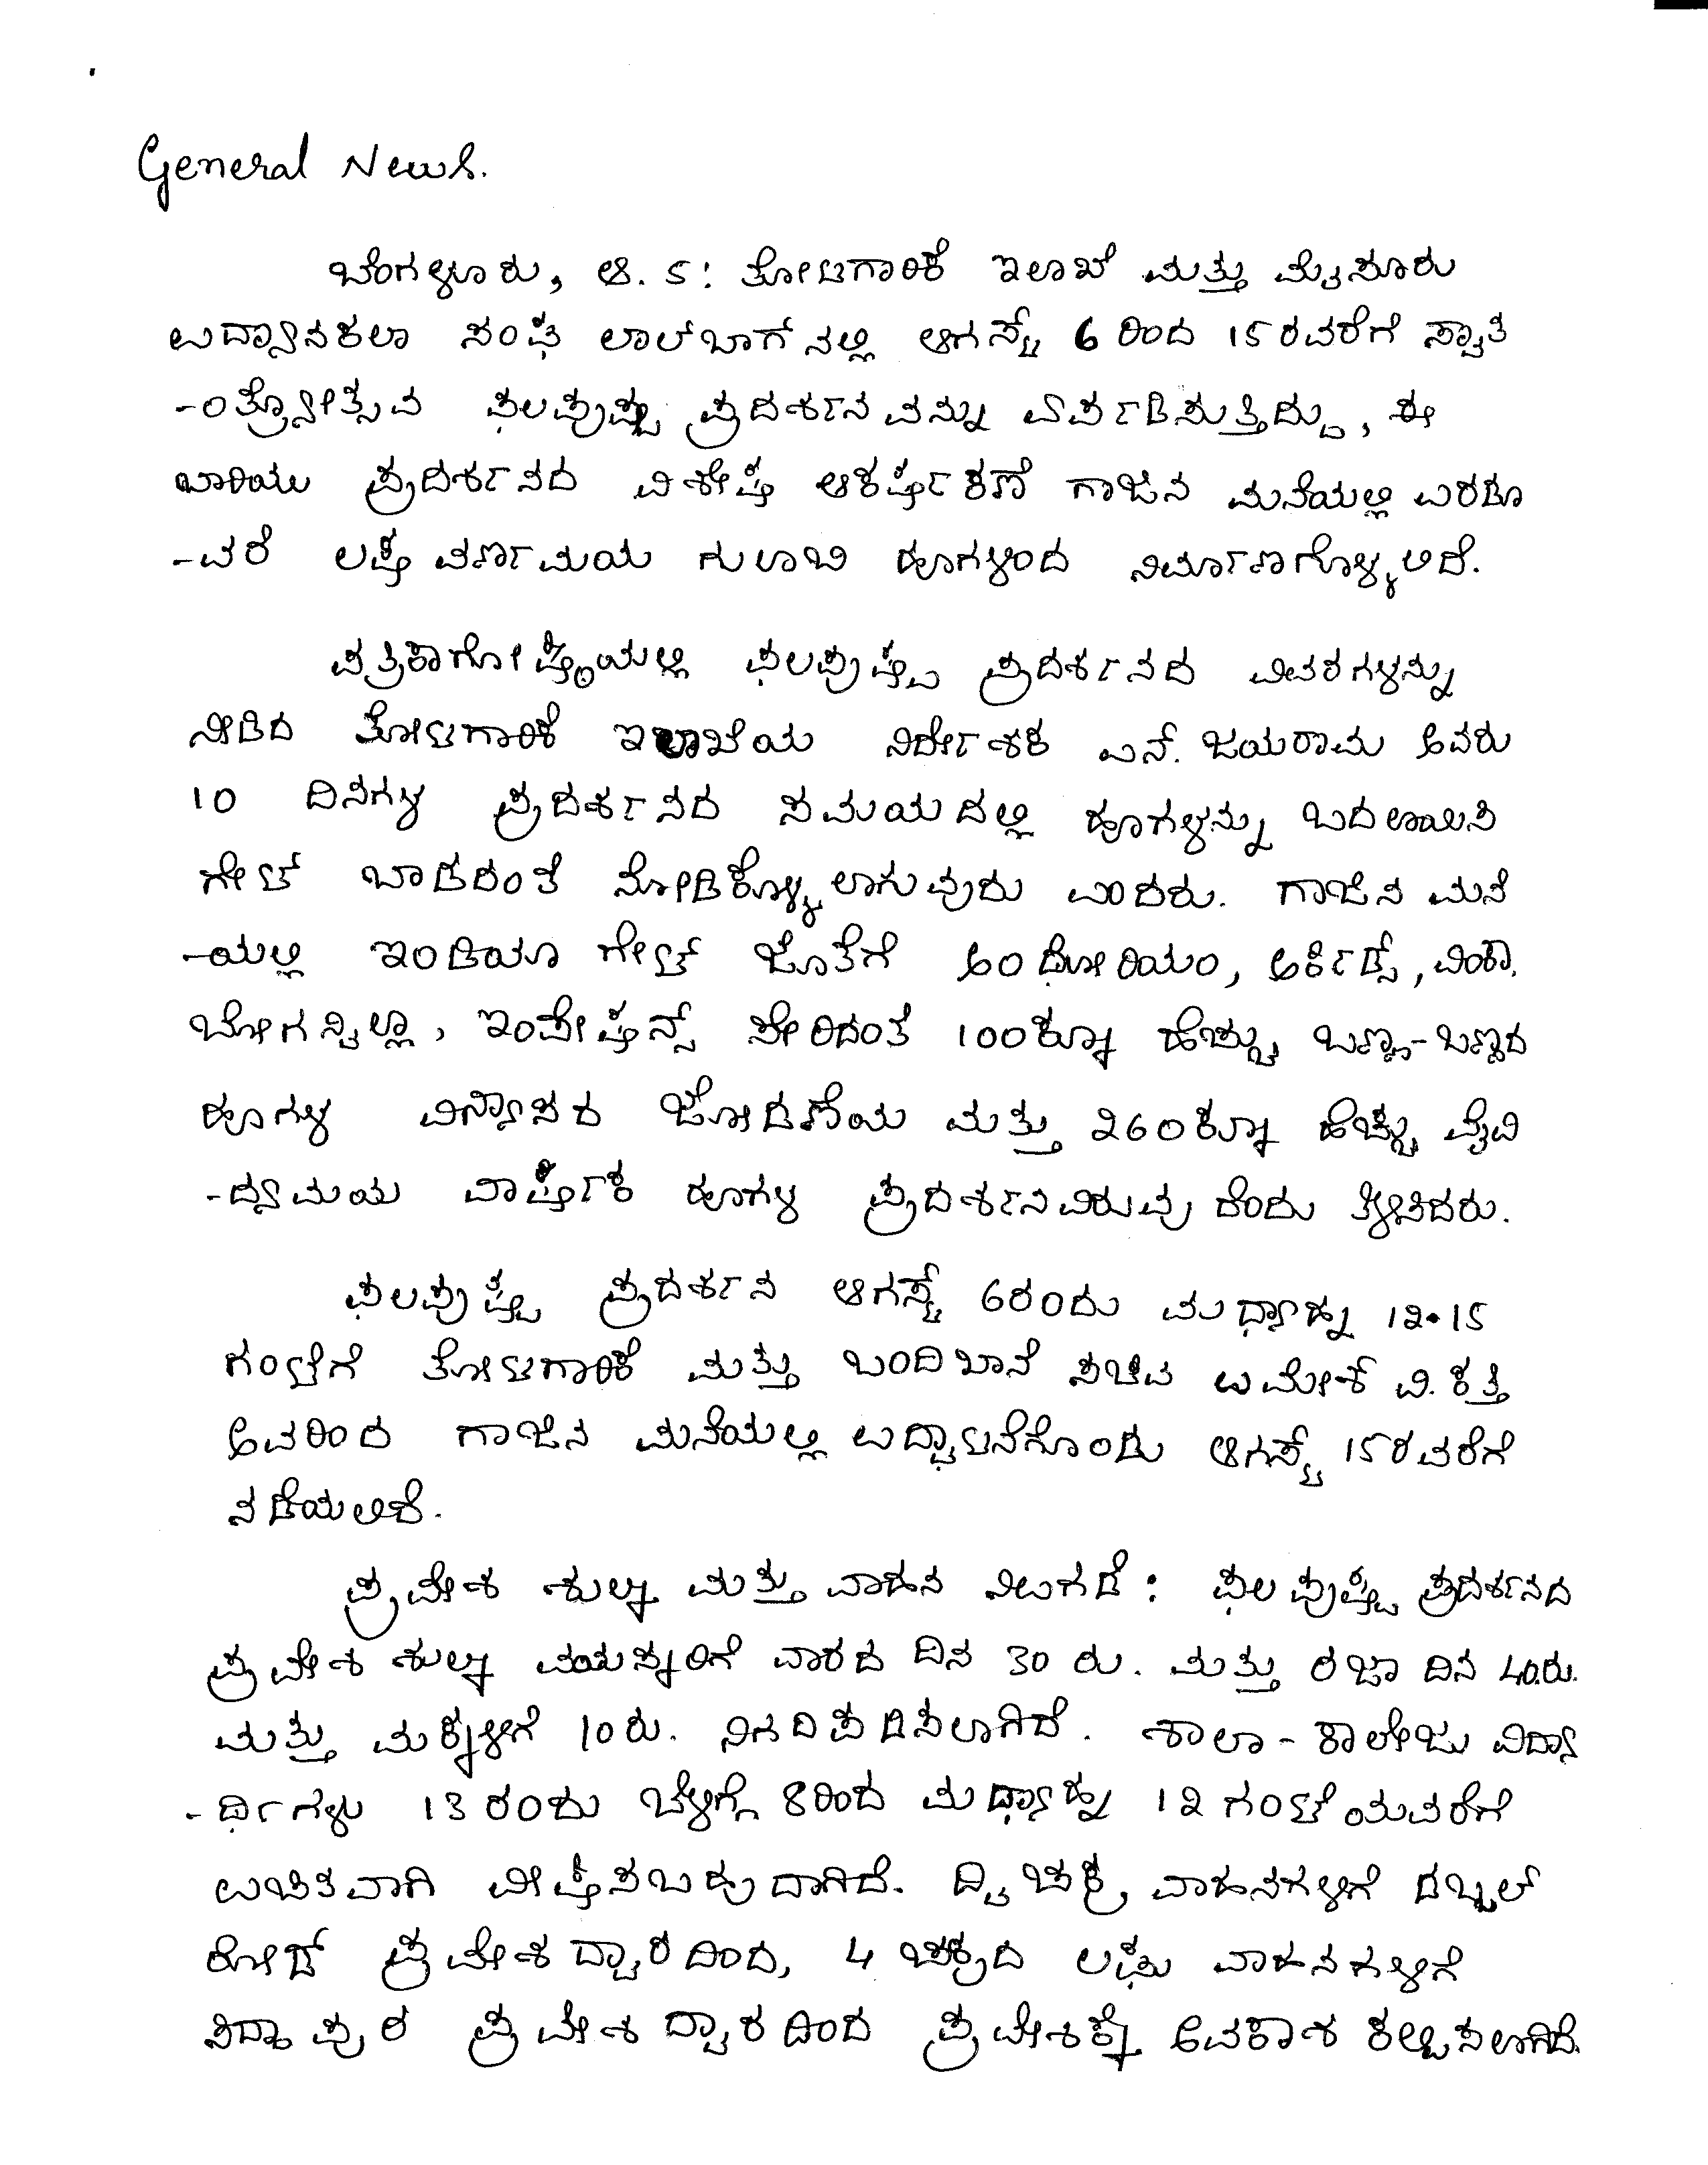 General News.
ಬೆಂಗಳೂರು, ಆ. 5: ತೋಟಗಾರಿಕೆ ಇಲಾಖೆ ಮತ್ತು ಮೈಸೂರು
ಉದ್ಯಾನಕಲಾ ಸಂಘ ಲಾಲ್‌ಬಾಗ್‌ನಲ್ಲಿ ಆಗಸ್ಟ್ 6 ರಿಂದ 15 ರವರೆಗೆ ಸ್ವಾತ
-ಂತ್ರ್ಯೋತ್ಸವ ಫಲಪುಷ್ಪ ಪ್ರದರ್ಶನವನ್ನು ಏರ್ಪಡಿಸುತ್ತಿದ್ದು, ಈ
ಬಾರಿಯ ಪ್ರದರ್ಶನದ ವಿಶೇಷ ಆಕರ್ಷಕಣೆ ಗಾಜಿನ ಮನೆಯಲ್ಲಿ ಎರಡೂ
-ವರೆ ಲಕ್ಷ ವರ್ಣಮಯ ಗುಲಾಬಿ ಹೂಗಳಿಂದ ನಿರ್ಮಾಣಗೊಳ್ಳಲಿದೆ.
ಪತ್ರಿಕಾಗೋಷ್ಠಿಯಲ್ಲಿ ಫಲಪುಷ್ಪ ಪ್ರದರ್ಶನದ ವಿವರಗಳನ್ನು
ನೀಡಿದ ತೋಟಗಾರಿಕೆ ಇಲಾಖೆಯ ನಿರ್ದೇಶಕ ಎನ್. ಜಯರಾಮ ಅವರು
10 ದಿನಗಳ ಪ್ರದರ್ಶನದ ಸಮಯದಲ್ಲಿ ಹೂಗಳನ್ನು ಬದಲಾಯಿಸಿ
ಗೇಟ್ ಬಾಡದಂತೆ ನೋಡಿಕೊಳ್ಳಲಾಗುವುದು ಎಂದರು. ಗಾಜಿನ ಮನೆ
-ಯಲ್ಲಿ ಇಂಡಿಯಾ ಗೇಟ್ ಜೊತೆಗೆ ಅಂಥೋರಿಯಂ, ಅರ್ಕಿಡ್ಸ್, ವಿಂಕಾ,
ಬೋಗನ್ವಿಲ್ಲಾ, ಇಂಪೇಷನ್ಸ್ ಸೇರಿದಂತೆ 100ಕ್ಕೂ ಹೆಚ್ಚು ಬಣ್ಣ-ಬಣ್ಣದ
ಹೂಗಳ ವಿನ್ಯಾಸದ ಜೋಡಣೆಯ ಮತ್ತು 260ಕ್ಕೂ ಹೆಚ್ಚು ವೈವಿ
-ಧ್ಯಮಯ ವಾರ್ಷಿಕ ಹೂಗಳ ಪ್ರದರ್ಶನವಿರುವುದೆಂದು ತಿಳಿಸಿದರು.
ಫಲಪುಷ್ಪ ಪ್ರದರ್ಶನ ಆಗಸ್ಟ್ 6ರಂದು ಮಧ್ಯಾಹ್ನ 12.15
ಗಂಟೆಗೆ ತೋಟಗಾರಿಕೆ ಮತ್ತು ಬಂದಿಖಾನೆ ಸಚಿವ ಉಮೇಶ್ ವಿ. ಕತ್ತಿ
ಅವರಿಂದ ಗಾಜಿನ ಮನೆಯಲ್ಲಿ ಉದ್ಘಾಟನೆಗೊಂಡು ಆಗಸ್ಟ್ 15ರವರೆಗೆ
ನಡೆಯಲಿದೆ.
ಪ್ರವೇಶ ಶುಲ್ಕ ಮತ್ತು ವಾಹನ ನಿಲುಗಡೆ: ಫಲಪುಷ್ಪ ಪ್ರದರ್ಶನದ
ಪ್ರವೇಶ ಶುಲ್ಕ ವಯಸ್ಕರಿಗೆ ವಾರದ ದಿನ 30 ರು. ಮತ್ತು ರಜಾ ದಿನ 40.ರು.
ಮತ್ತು ಮಕ್ಕಳಿಗೆ 10ರು. ನಿಗದಿಪಡಿಸಲಾಗಿದೆ. ಶಾಲಾ-ಕಾಲೇಜು ವಿದ್ಯಾ
-ರ್ಥಿಗಳು 13 ರಂದು ಬೆಳಿಗ್ಗೆ 8ರಿಂದ ಮಧ್ಯಾಹ್ನ 12 ಗಂಟೆಯವರೆಗೆ
ಉಚಿತವಾಗಿ ವೀಕ್ಷಿಸಬಹುದಾಗಿದೆ. ದ್ವಿಚಕ್ರ ವಾಹನಗಳಿಗೆ ಡಬ್ಬಲ್
ರೋಡ್ ಪ್ರವೇಶ ದ್ವಾರದಿಂದ, 4 ಚಕ್ರದ ಲಘು ವಾಹನಗಳಿಗೆ
ಸಿದ್ಧಾಪುರ ಪ್ರವೇಶ ದ್ವಾರದಿಂದ ಪ್ರವೇಶಕ್ಕೆ ಅವಕಾಶ ಕಲ್ಪಿಸಲಾಗಿದೆ.